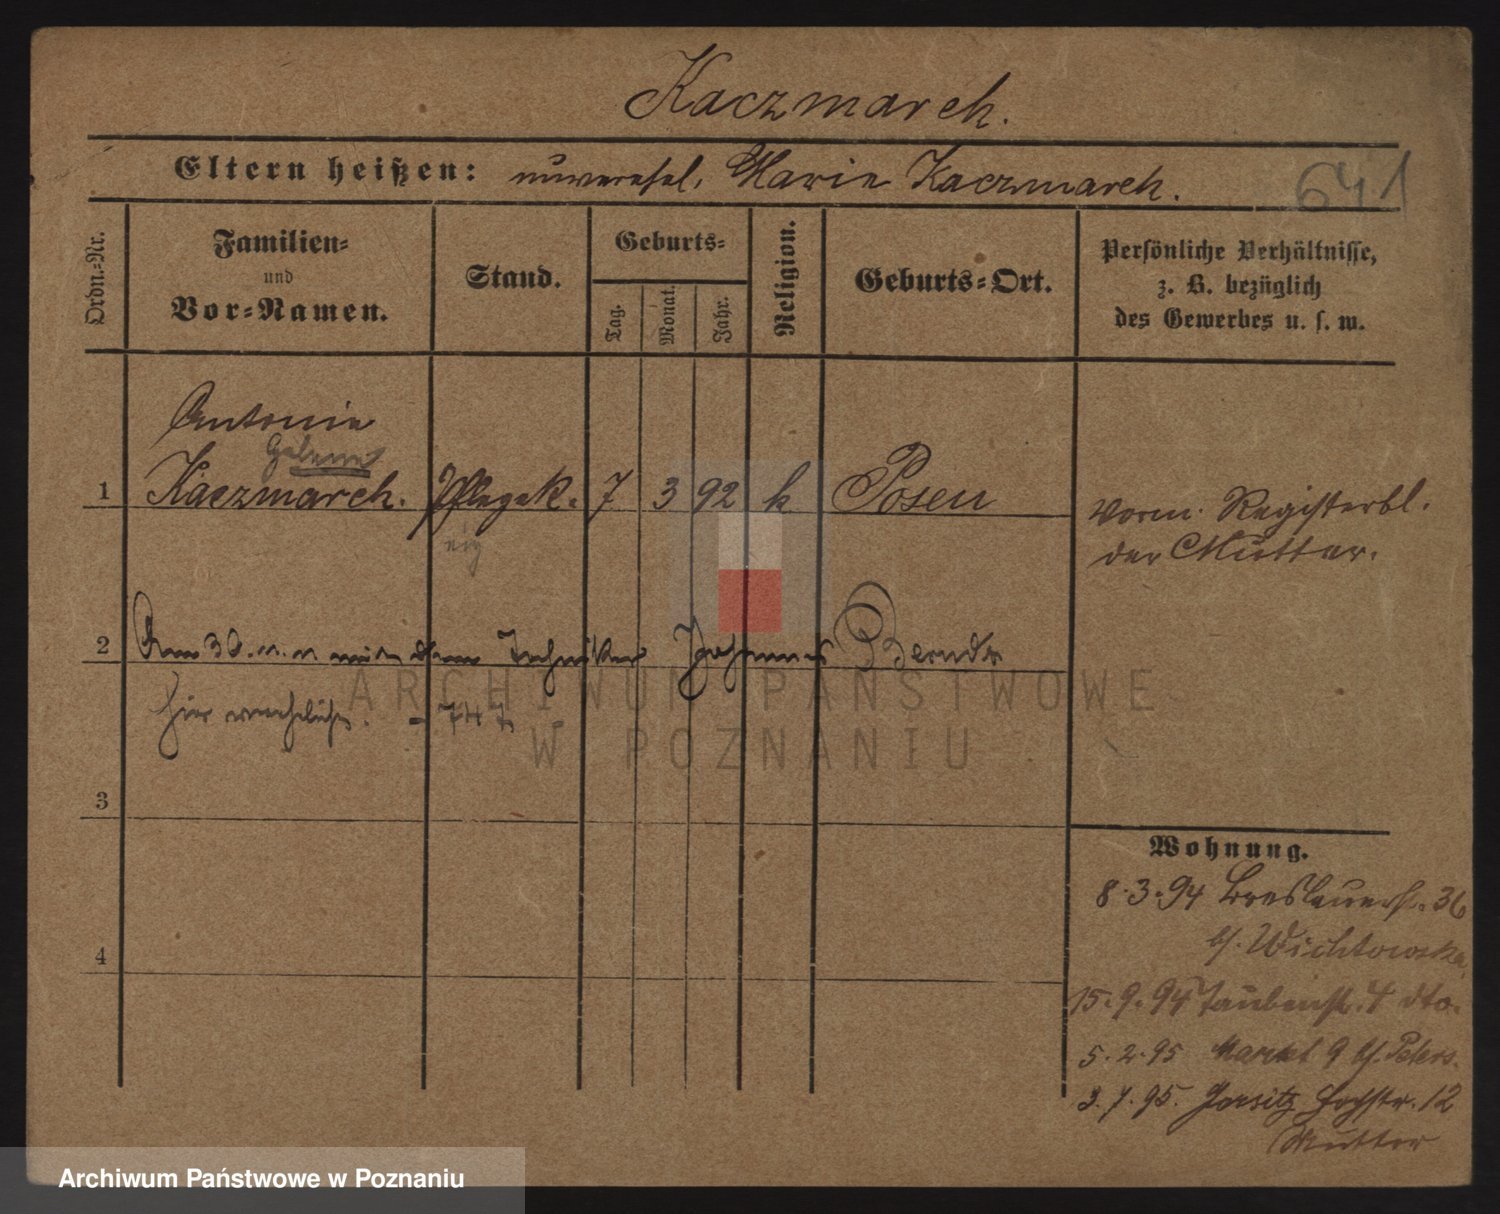 Kaczmarek.
Eltern heißen: unverehel. Marie Kaczmarek.
641
Ordn.-Nr.
Familien- und Vor-Namen.
Stand.
Geburts-
Tag.
Monat.
Jahr.
Religion.
Geburts-Ort.
Persönliche Verhältnisse,
z. B. bezüglich
des Gewerbes u. s. w.
Antonie
1 Kaczmarek. Pflegek. 7 3 92 k Posen
vorm. Registerbl.
der Mutter.
2 Am 30. mit dem Techniker Johannes Berndt
hier verehelicht. - 747 -
ARCHIWUM PAŃSTWOWE
W POZNANIU
3
4
Wohnung.
8.3.94 Breslauerst. 36
b/. Wichtowska
15.9.94 Taubenst. 4 dto.
5.2.95 Markt 9 b/. Peters.
3.7.95. Jersitz Hochstr. 12
Mutter
Archiwum Państwowe w Poznaniu